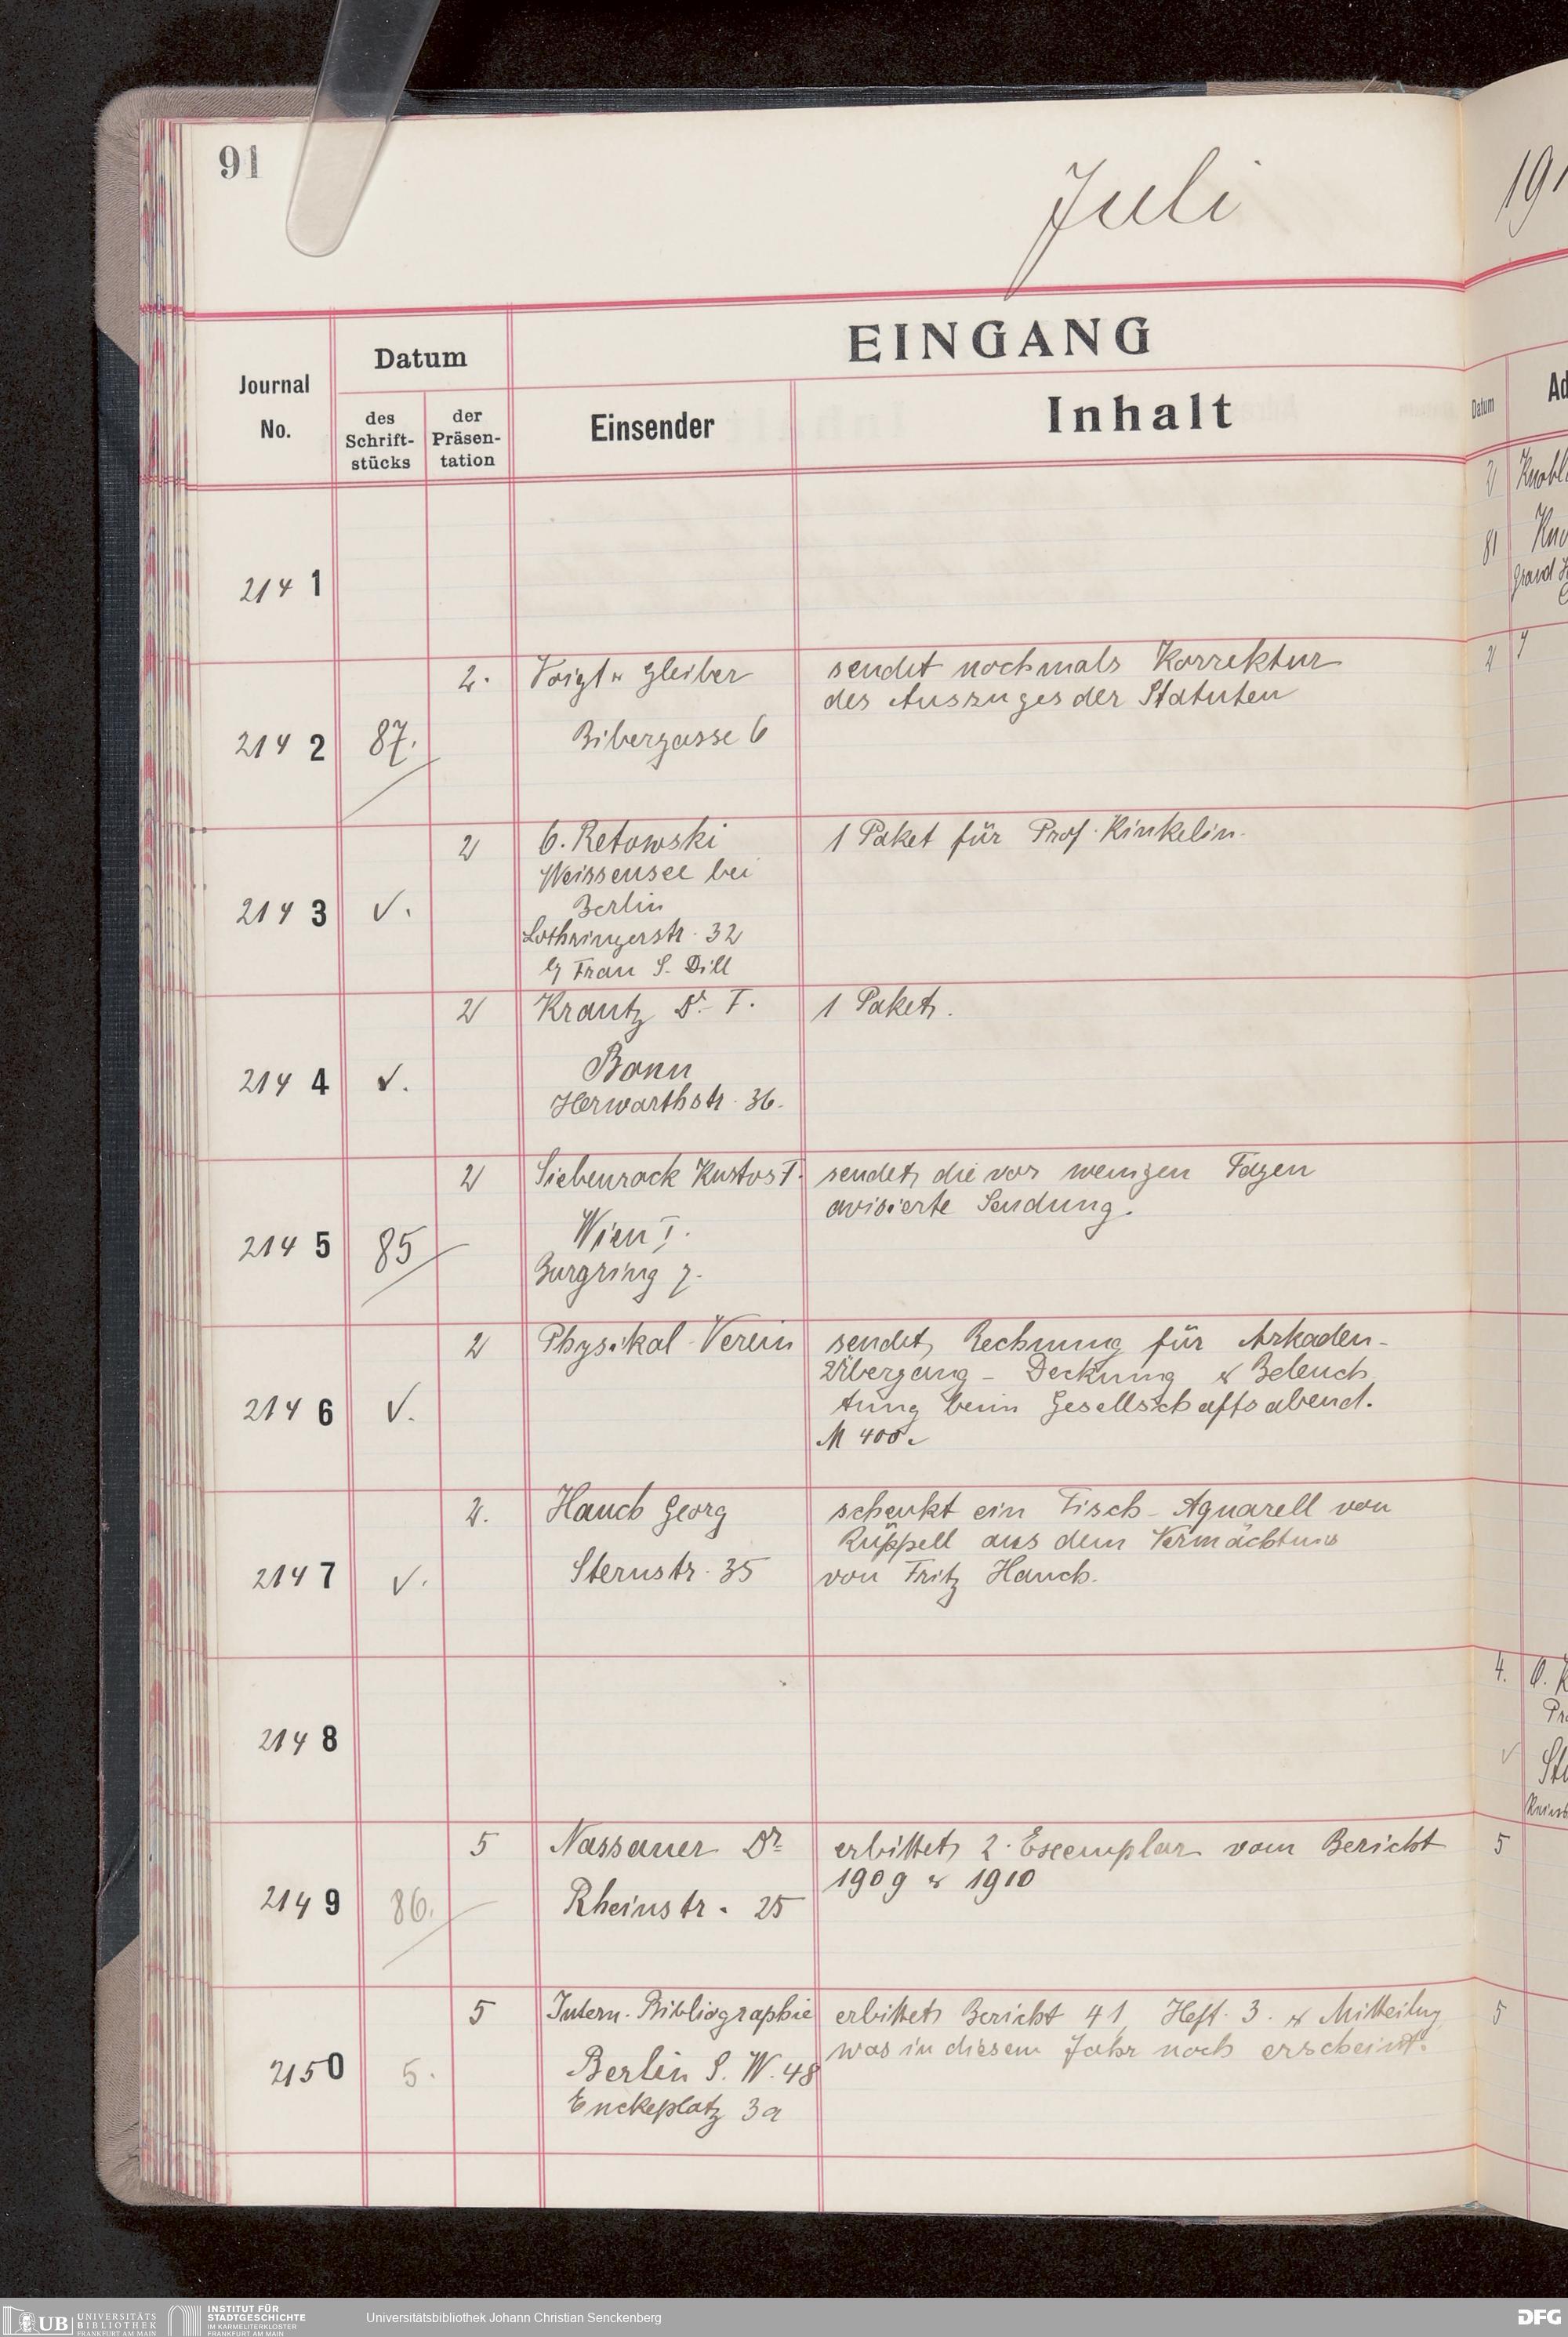 91
Juli
191
EINGANG
Datum
Journal
No.
des
Schrift-
stücks
der
Präsen-
tation
Einsender
Inhalt
Datum
Ad
2141
2142
87.
2.
Voigt u Gleiber
Bibergasse 6
sendet nochmals Korrektur
des Auszuges der Statuten
2143
√.
2
O. Retowski
Weissensee bei
Berlin
Lothringerstr. 32
b/ Frau S. Dill
1 Paket für Prof. Kinkelin.
2144
√.
2
Krantz Dr. F.
Bonn
Herwarthstr. 36.
1 Paket.
2145
85
2
Siebenrock Kustos F.
Wien I.
Burgring 7.
sendet die vor wenigen Tagen
avisierte Sendung.
2146
√.
2
Physikal. Verein
sendet Rechnung für Arkaden-
Übergang - Deckung & Beleuch
tung beim Gesellschaftsabend.
M 400.
2147
√.
2.
Hauch Georg
Sternstr. 35
schenkt ein Fisch-Aquarell von
Rüppell aus dem Vermächtnis
von Fritz Hauch.
2148
2149
86.
5
Nassauer Dr.
Rheinstr. 25
erbittet 2 Exemplar vom Bericht
1909 & 1910
5
2150
5.
5
Intern. Bibliographie
Berlin S. W. 48
Enckeplatz 3a
erbittet Bericht 41, Heft 3. & Mitteilung
was in diesem Jahr noch erscheint.
5
UB UNIVERSITÄTS
BIBLIOTHEK
FRANKFURT AM MAIN
INSTITUT FÜR
STADTGESCHICHTE
IM KARMELITERKLOSTER
FRANKFURT AM MAIN
Universitätsbibliothek Johann Christian Senckenberg
DFG